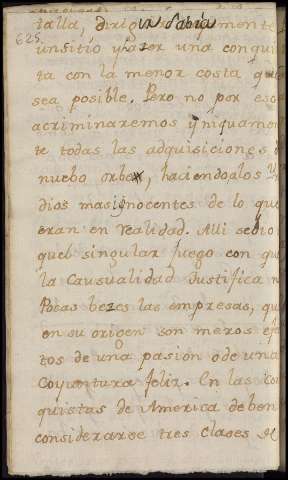 talla, dirigir sabiamente
625
un sitio y azer una conquis
ta con la menor costa que
sea posible. Pero no por eso
acriminaremos yniquamen
te todas las adquisiciones
nuebo orbe, haciendoalos Yn
dios mas ignocentes de lo que
eran en realidad. Alli se dio
quel singular juego con que
la Causualidad Justifica n
Pocas bezes las empresas, que
en su origen son meros efe
tos de una pasión o de una
Coyuntura feliz. En las con
quistas de America deben
considerarse tres clases de